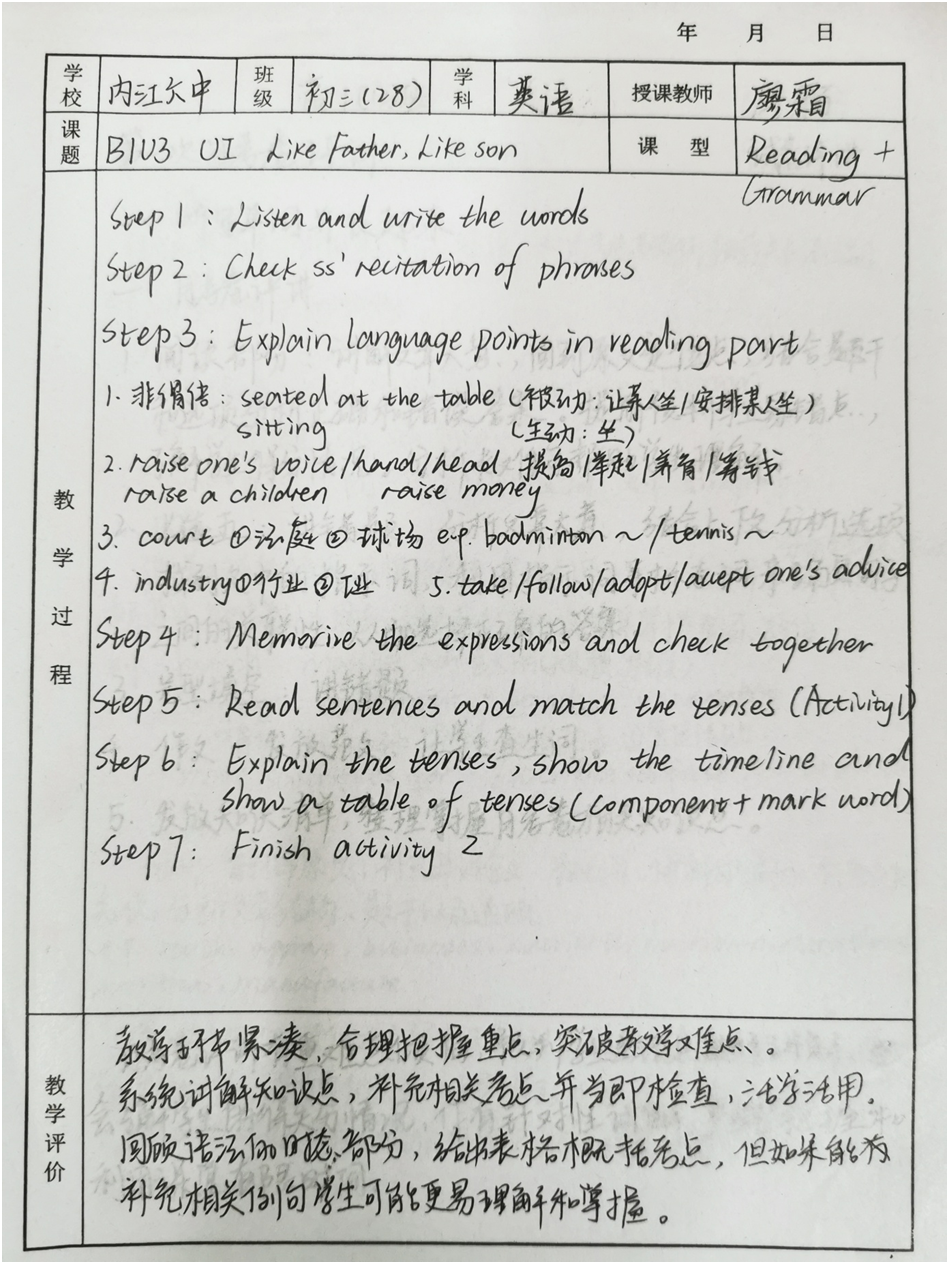 年 月 日
学校 内江六中 班级 初三(28) 学科 英语 授课教师 廖霜
课题 B1U3 UI Like Father, Like son 课型 Reading +
Grammar
Step 1 : Listen and write the words
Step 2 : Check ss' recitation of phrases
Step 3 : Explain language points in reading part
1. 非谓语 : seated at the table (被动 : 让某人坐/安排某人坐)
sitting (主动 : 坐)
2. raise one's voice/hand/head 提高/举起/养育/筹钱
raise a children raise money
3. court ①法庭 ② 球场 e.g. badminton ~ / tennis ~
4. industry ①行业 ②工业 5. take/follow/adopt/accept one's advice
教学过程
Step 4 : Memorize the expressions and check together
Step 5 : Read sentences and match the tenses (Activity1)
Step 6 : Explain the tenses, show the timeline and
show a table of tenses (component + mark word)
Step 7 : Finish activity 2
教学评价
教学环节紧凑,合理把握重点,突破教学难点。
系统讲解知识点,补充相关考点并当即检查,活学活用。
回顾语法的时态部分,给出表格概括考点,但如果能有
补充相关例句学生可能更易理解和掌握。